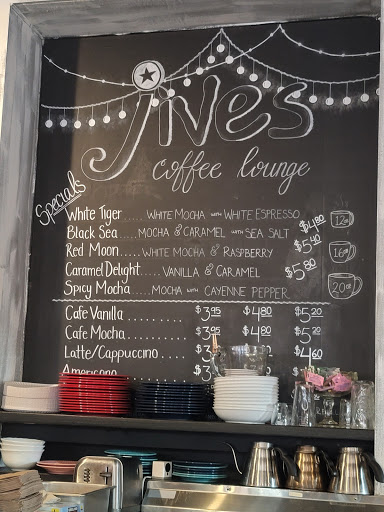 jives
coffee lounge
Specials
White Tiger..... WHITE MOCHA WITH WHITE ESPRESSO
Black Sea..... MOCHA & CARAMEL WITH SEA SALT
Red Moon..... WHITE MOCHA & RASPBERRY
Caramel Delight..... VANILLA & CARAMEL
Spicy Mocha..... MOCHA WITH CAYENNE PEPPER
$4.80 12oz
$5.40 16oz
$5.80 20oz
Cafe Vanilla .......... $3.95 $4.80 $5.20
Cafe Mocha.......... $3.95 $4.80 $5.20
Latte/Cappuccino .... $4.60
Americano